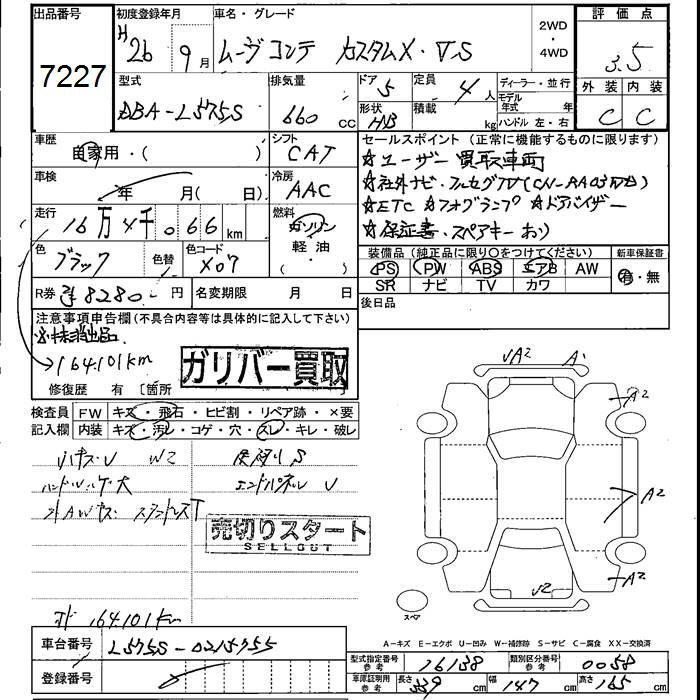 出品番号 初度登録年月 車名・グレード 2WD・4WD 評価点
7227 H 26 9月 ムーヴコンテ カスタムX・VS 3.5
型式 排気量 ドア 5 定員 4人 ディーラー・並行 外装 内装
モデル年式 年
DBA-L575S 660 cc 形状 H/B 積載 kg ハンドル 左・右 C C
車歴 自家用・( ) シフト CAT セールスポイント(正常に機能するものに限ります)
★ユーザー買取車両
車検 年 月( 日) 冷房 AAC ★社外ナビ・フルセグTV
走行 16万4千066km 燃料 ガソリン 軽油 ・( ) ★ETC ★フォグランプ ★ドアバイザー
★保証書・スペアキーあり
色 ブラック 色替 色コード X07 装備品(純正品に限り〇をつけてください) 新車保証書
PS PW ABS エアB AW 有・無
SR ナビ TV カワ
R券 8280 円 名変期限 月 日 後日品
注意事項申告欄(不具合内容等は具体的に記入して下さい)
→164101km
ガリバー買取
修復歴 有 [箇所 ]
検査員 FW キズ・飛石・ヒビ割・リペア跡・×要
記入欄 内装 キズ・汚レ・コゲ・穴・スレ・キレ・破レ
W2 S
エンドパネル U
売切りスタート
SELLOUT
164101km
√A2 A'
A2
A2
A2
√2
スペア
A-キズ E-エクボ U-凹み W-補修跡 S-サビ C-腐食 XX-交換済
車台番号 L575S-0215755
登録番号
型式指定番号 参考 16138 類別区分番号 参考 0058
車庫証明用 参考 長さ 339cm 幅 147cm 高さ 165cm